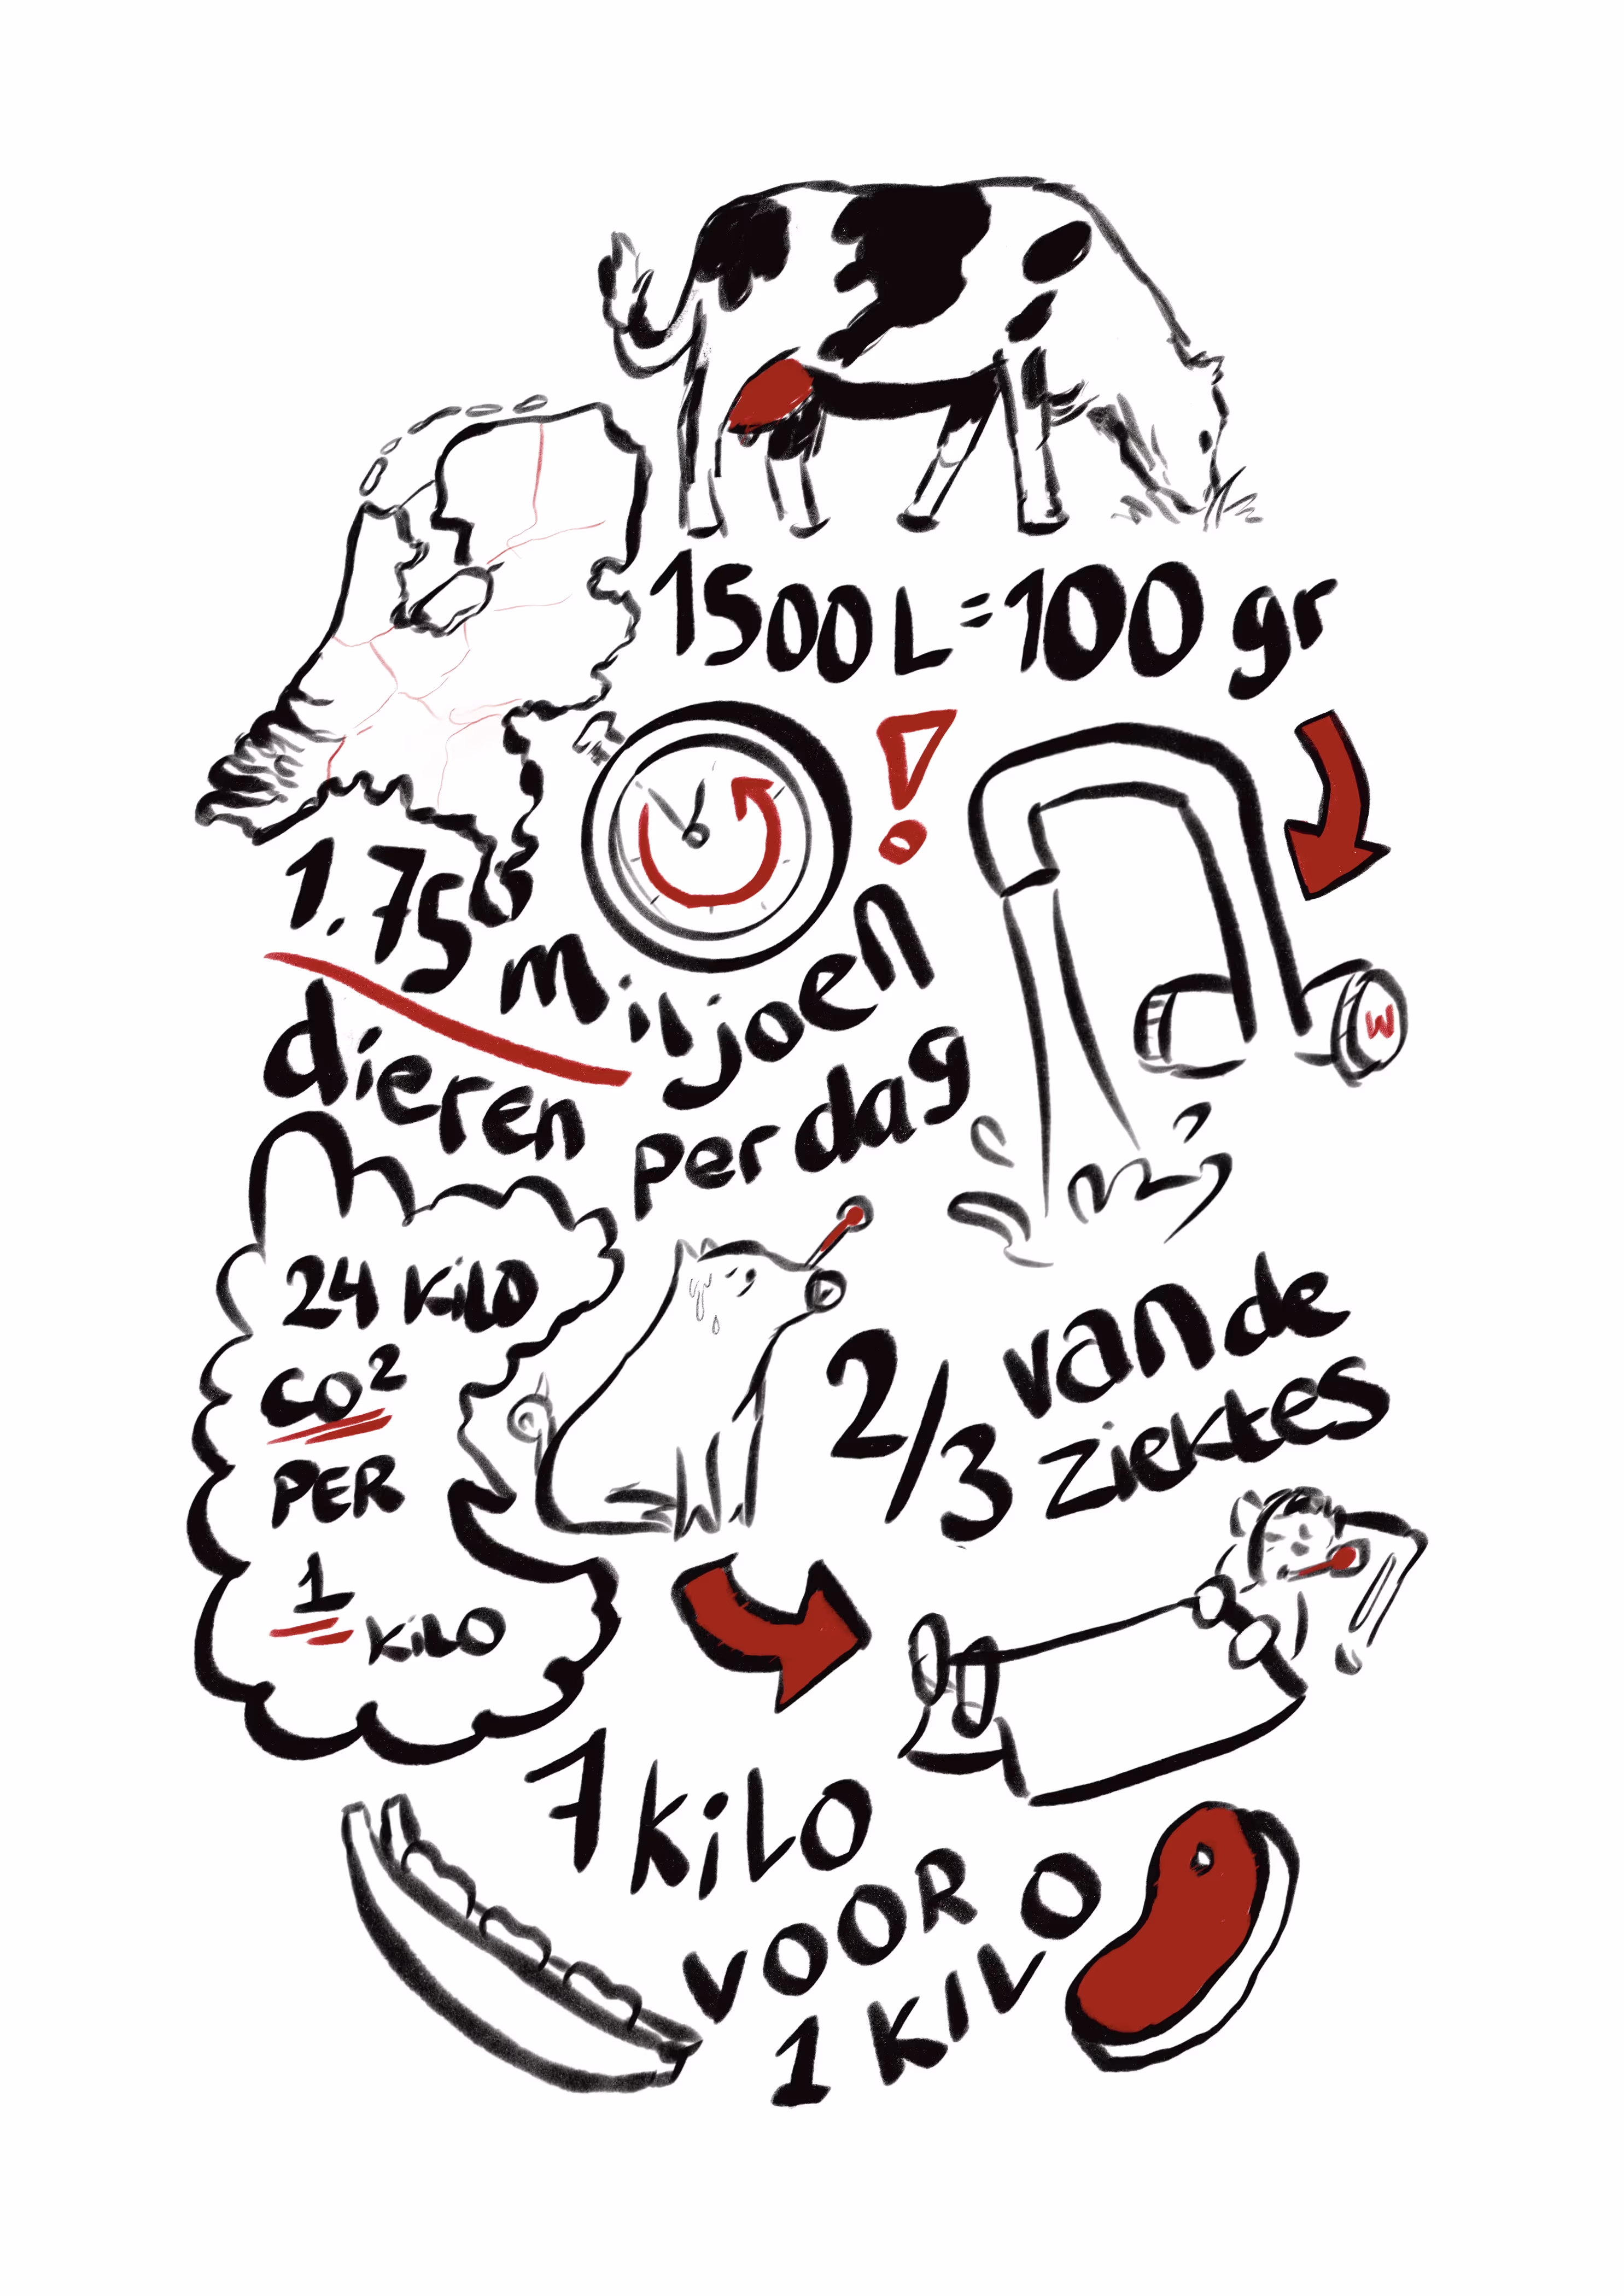 1500 L = 100 gr
1.75 miljoen
dieren per dag
W
24 KiLO
CO²
PER
1 KiLO
2/3 van de
ziektes
7 KiLO
VOOR
1 KILO